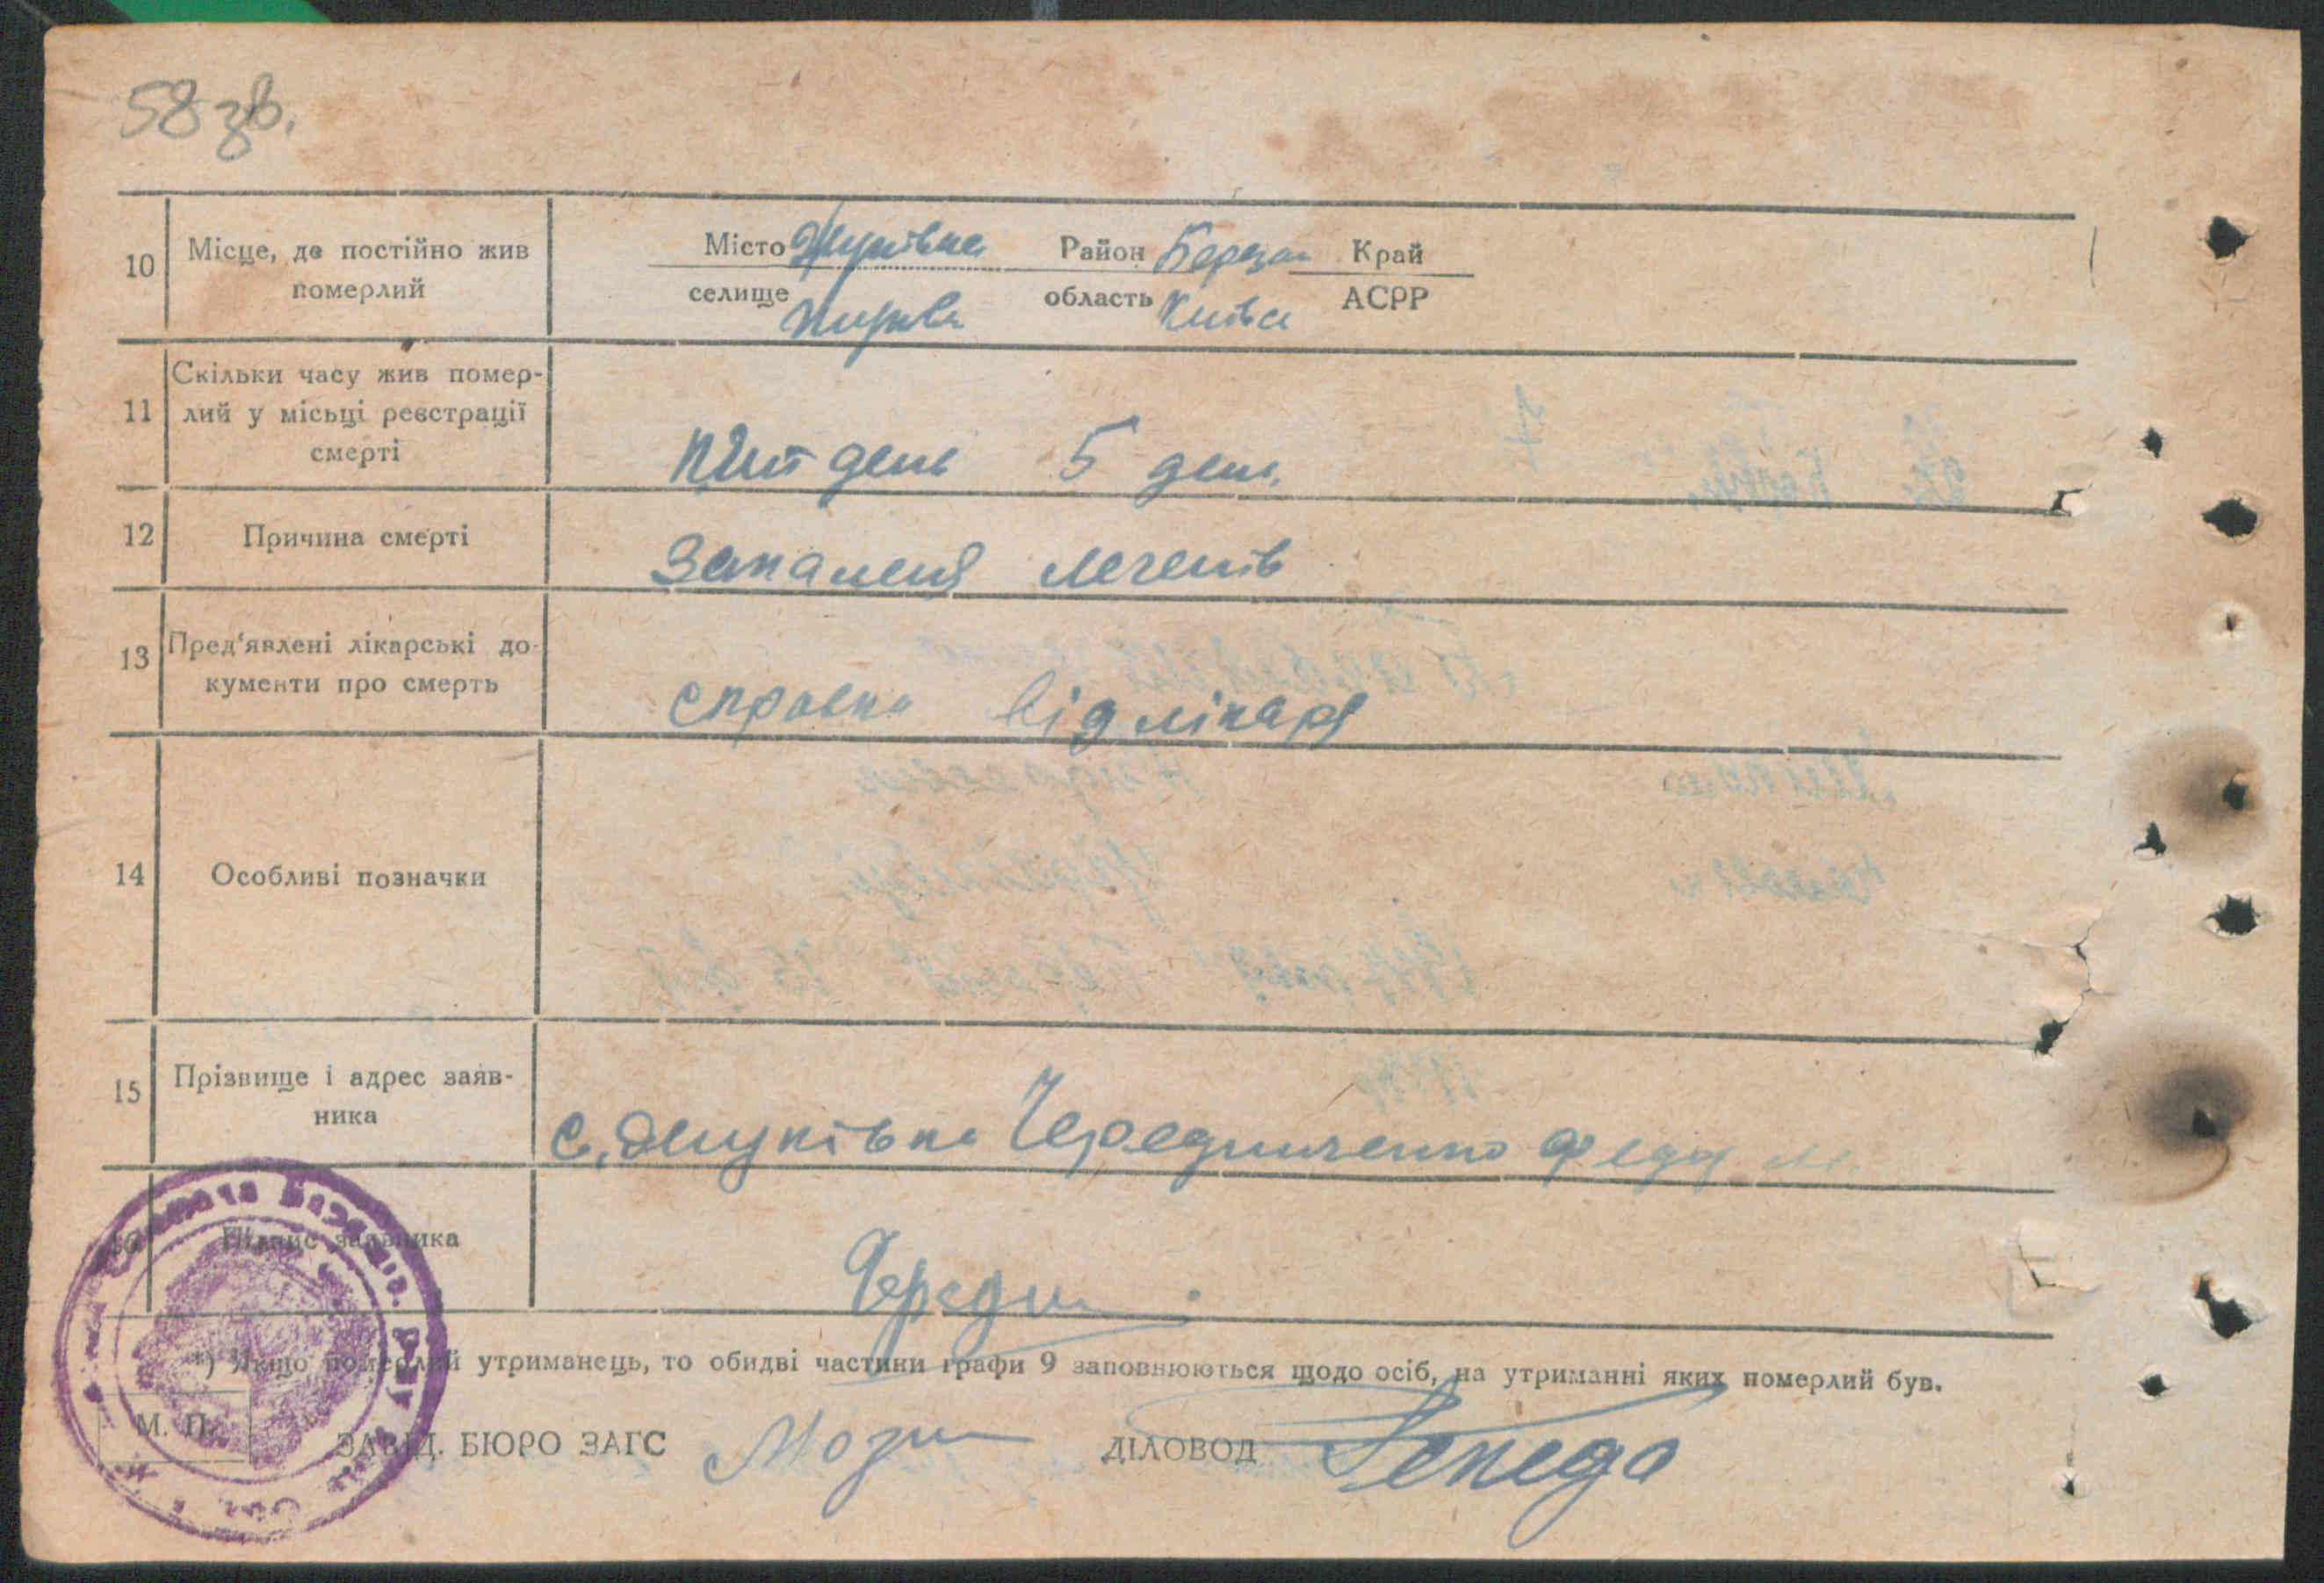 58 зв.
10 Місце, де постійно жив
померлий
Місто Жуківка Район Березан Край
селище Жуківк область Київск АСРР
11 Скільки часу жив помер-
лий у місьці реєстрації
смерті
день 5 день
12 Причина смерті
Запаленя легенів
13 Пред'явлені лікарські до-
кументи про смерть
справка від лікаря
14 Особливі позначки
15 Прізвище і адрес заяв-
ника
с. Жуківка Чередниченко
16 Підпис заявника
Середи
*) Якщо померлий утриманець, то обидві частини графи 9 заповнюються щодо осіб, на утриманні яких померлий був.
М. П.
ЗАВІД. БЮРО ЗАГС ДІЛОВОД